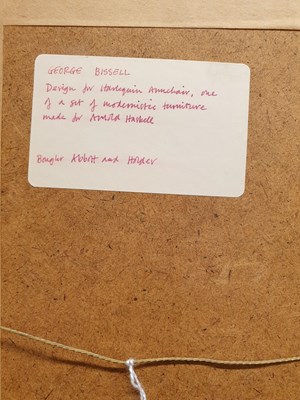 GEORGE BISSELL
Design for Harlequin Armchair, one
of a set of modernistic furniture
made for Arnold Haskell
Bought Abbott and Holder